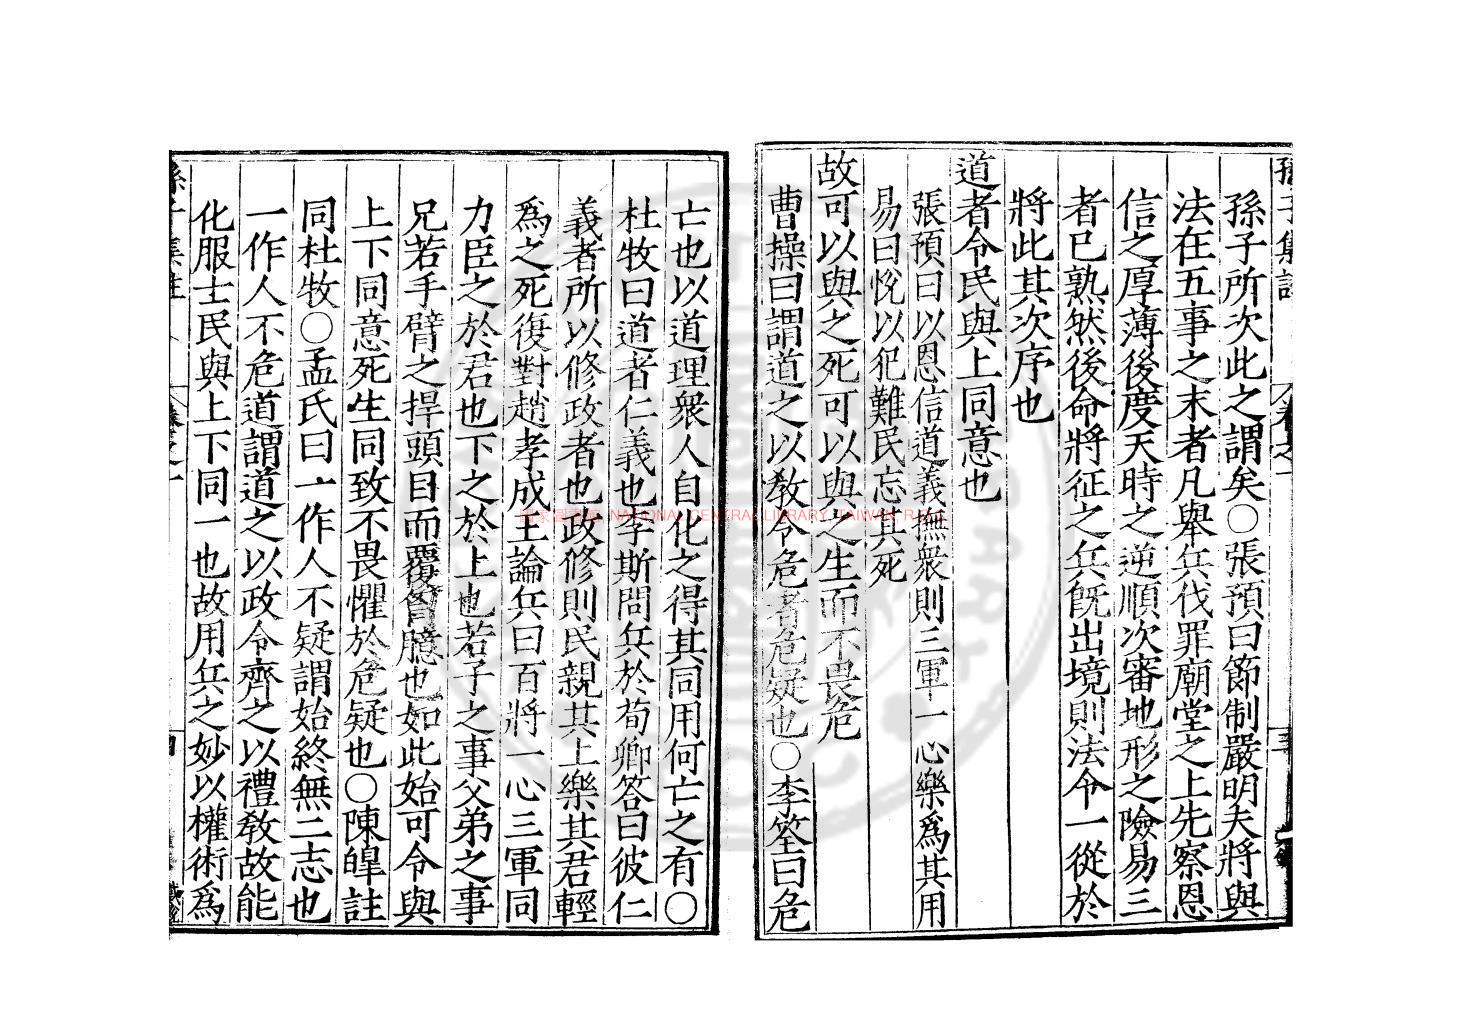 孫子所次此之謂矣〇張預曰節制嚴明夫將與
法在五事之末者凡舉兵伐罪廟堂之上先察恩
信之厚薄後度天時之逆順次審地形之險易三
者已熟然後命將征之兵旣出境則法令一從於
將此其次序也
道者令民與上同意也
張預曰以恩信道義撫衆則三軍一心樂爲其用
易曰悅以犯難民忘其死
故可以與之死可以與之生而不畏危
曹操曰謂道之以敎令危者危疑也〇李筌曰危
亡也以道理衆人自化之得其同用何亡之有〇
杜牧曰道者仁義也李斯問兵於荀卿答曰彼仁
義者所以修政者也政修則民親其上樂其君輕
爲之死復對趙孝成王論兵曰百將一心三軍同
力臣之於君也下之於上也若子之事父弟之事
兄若手臂之捍頭目而覆胷臆也如此始可令與
上下同意死生同致不畏懼於危疑也〇陳皥註
同杜牧〇孟氏曰一作人不疑謂始終無二志也
一作人不危道謂道之以政令齊之以禮敎故能
化服士民與上下同一也故用兵之妙以權術爲
孫子集註
卷之一
四
國家圖書館 NATIONAL CENTRAL LIBRARY, TAIWAN, R.O.C.